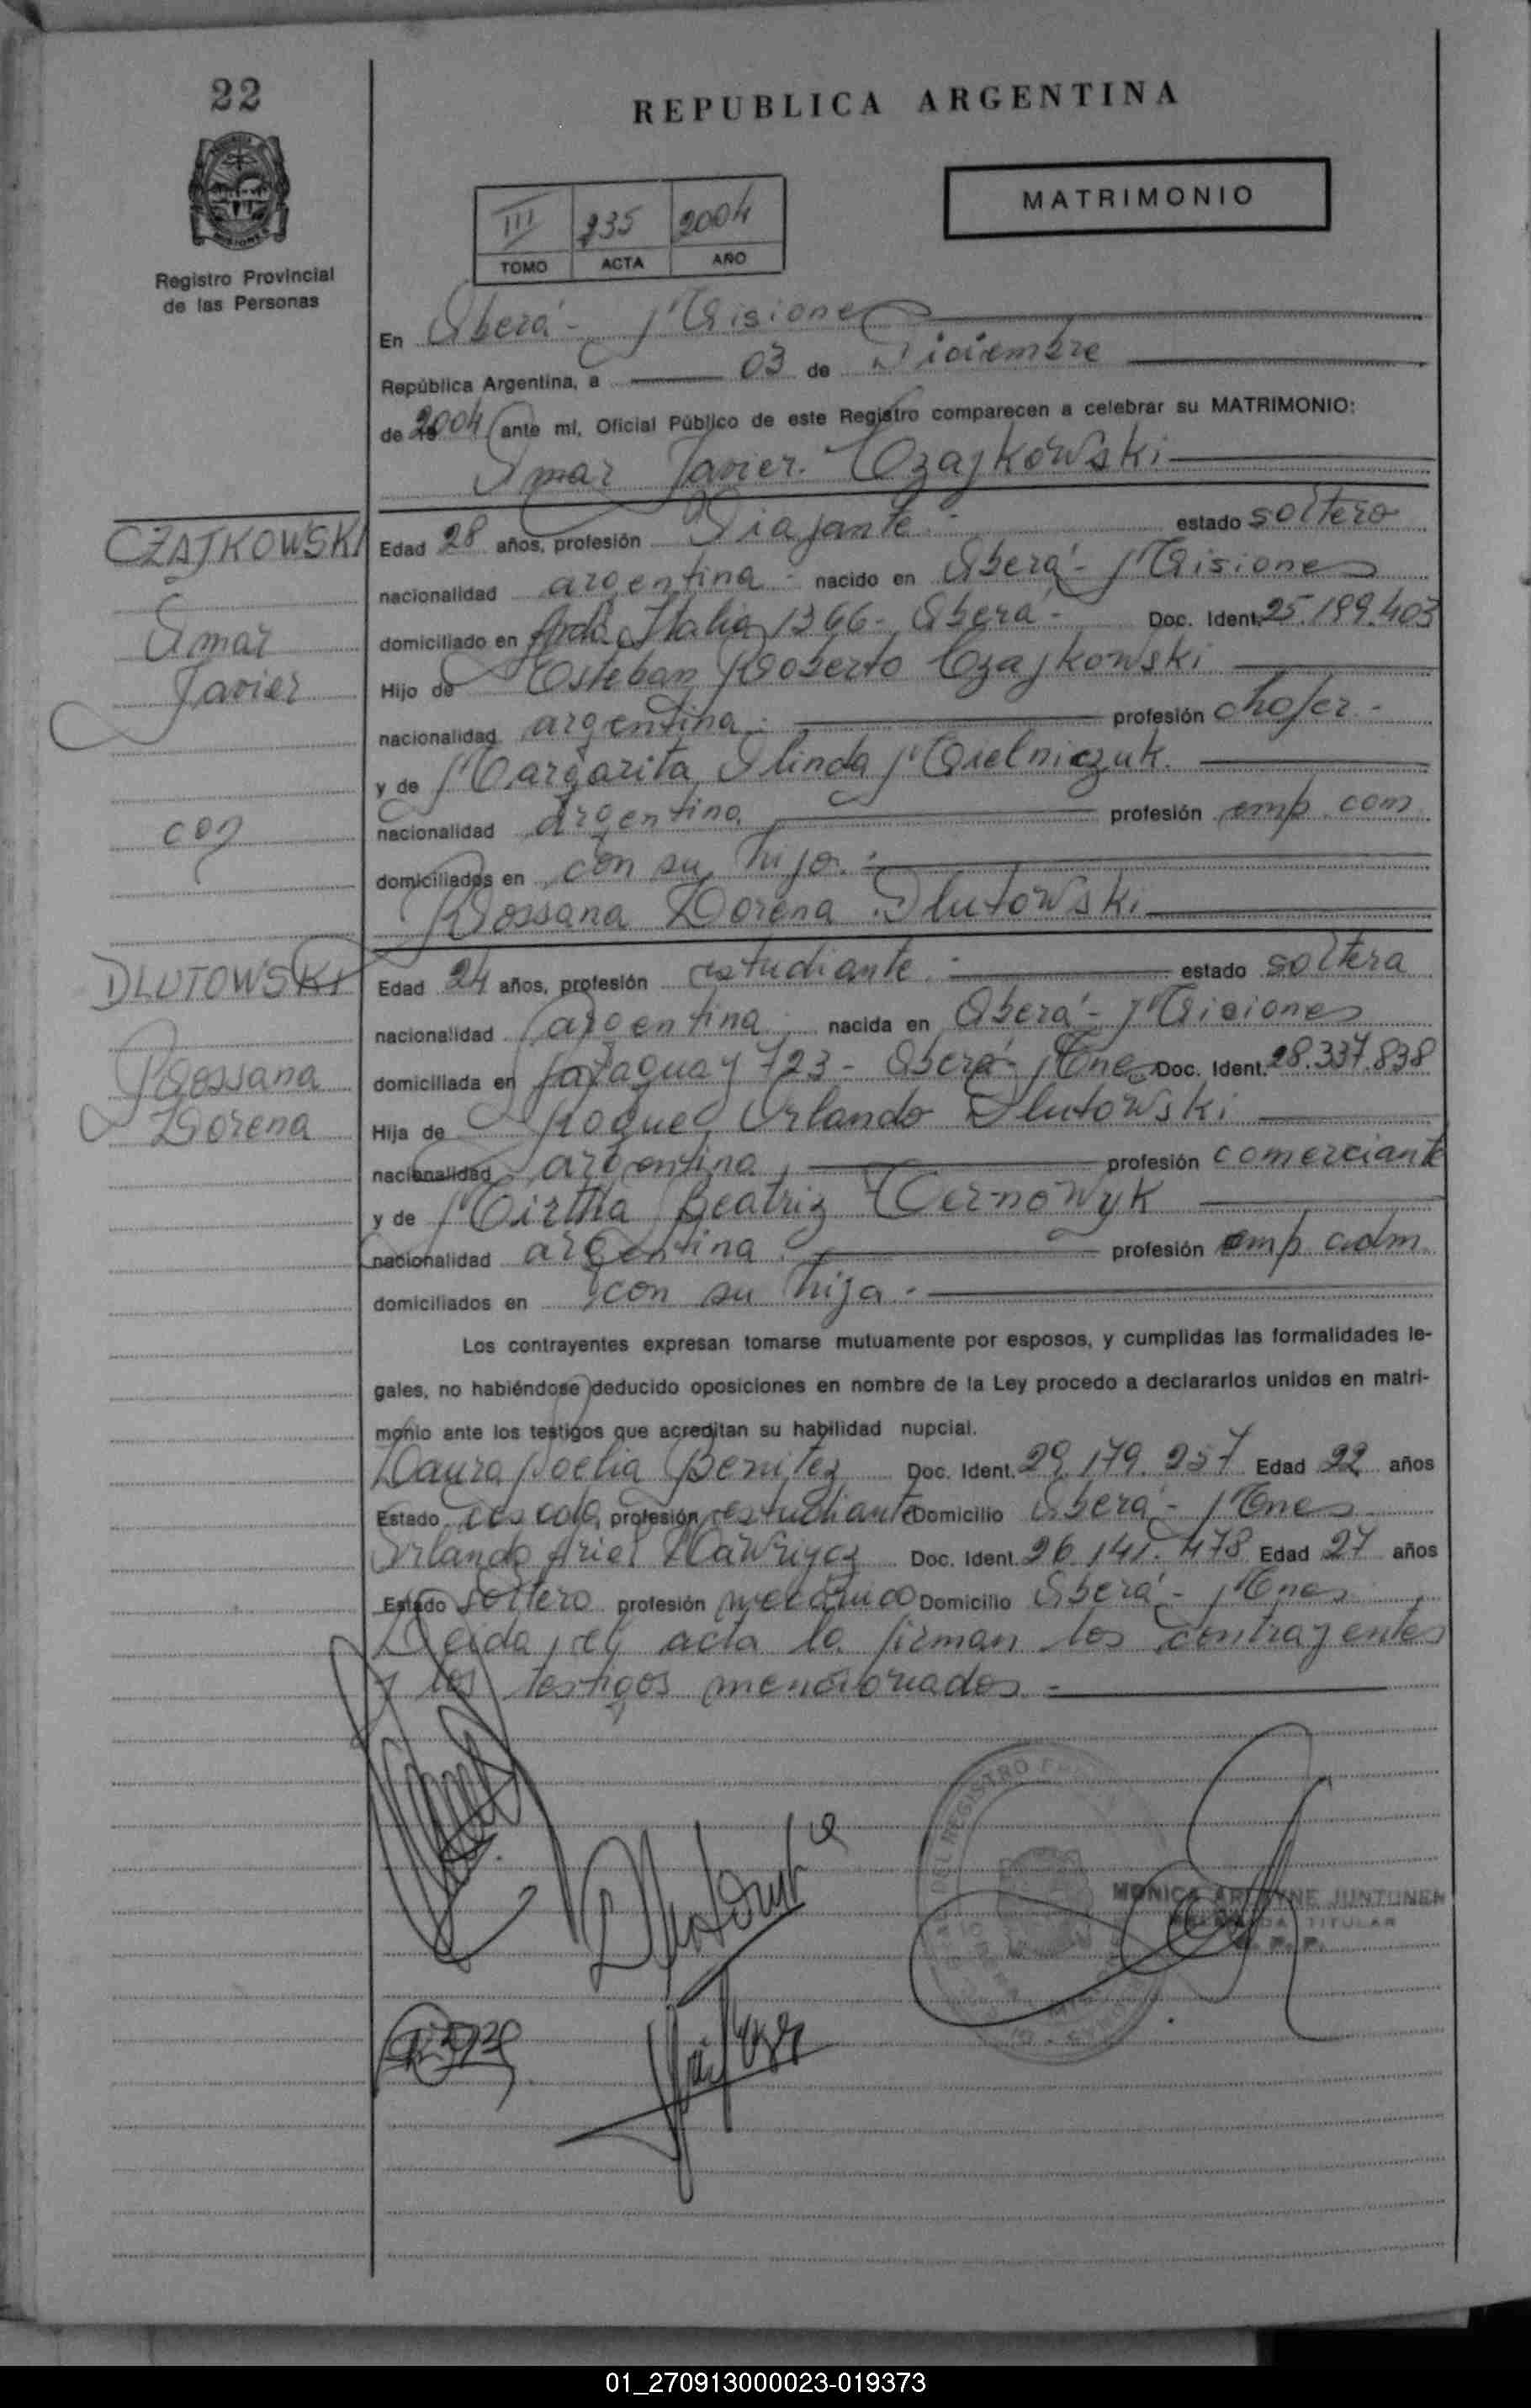 22
REPUBLICA ARGENTINA
MATRIMONIO
III 235 2004
TOMO ACTA AÑO
Registro Provincial
de las Personas
En Oberá - Misiones
República Argentina, a 03 de Diciembre
de 2004 ante mi, Oficial Público de este Registro comparecen a celebrar su MATRIMONIO:
Omar Javier Czajkowski
CZAJKOWSKI
Omar
Javier
con
Edad 28 años, profesión Viajante.- estado soltero
nacionalidad argentina - nacido en Oberá - Misiones
domiciliado en Avda. Italia 1366 - Oberá - Doc. Ident. 25.199.403
Hijo de Esteban Roberto Czajkowski
nacionalidad argentina.- profesión chofer.-
y de Margarita Olinda Mielniczuk.
nacionalidad argentina profesión emp. com
domiciliados en con su hijo.-
Rossana Lorena Dlutowski
DLUTOWSKI
Rossana
Lorena
Edad 24 años, profesión estudiante.- estado soltera
nacionalidad argentina nacida en Oberá - Misiones
domiciliada en Paraguay 723 - Oberá - Mnes Doc. Ident. 28.337.838
Hija de Roque Orlando Dlutowski
nacionalidad argentina profesión comerciante
y de Mirtha Beatriz Czernowyk
nacionalidad argentina profesión emp adm.
domiciliados en con su hija.-
Los contrayentes expresan tomarse mutuamente por esposos, y cumplidas las formalidades le-
gales, no habiéndose deducido oposiciones en nombre de la Ley procedo a declararlos unidos en matri-
monio ante los testigos que acreditan su habilidad nupcial.
Laura Noelia Benitez Doc. Ident. 29.179.257 Edad 22 años
Estado casada profesión estudiante Domicilio Oberá - Mnes
Orlando Ariel Hawrycz Doc. Ident. 26.141.478 Edad 27 años
Estado soltero profesión mecánico Domicilio Oberá - Mnes
Leida el acta la firman los contrayentes
y los testigos mencionados.-
MONICA JUNTUNEN
TITULAR
01_270913000023-019373